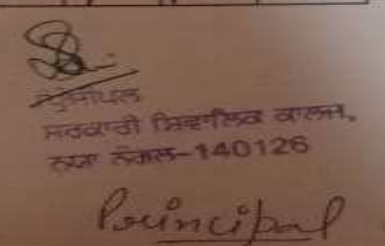 ਪ੍ਰਿੰਸੀਪਲ
ਸਰਕਾਰੀ ਸ਼ਿਵਾਲਿਕ ਕਾਲਜ,
ਨਯਾ ਨੰਗਲ-140126
Principal